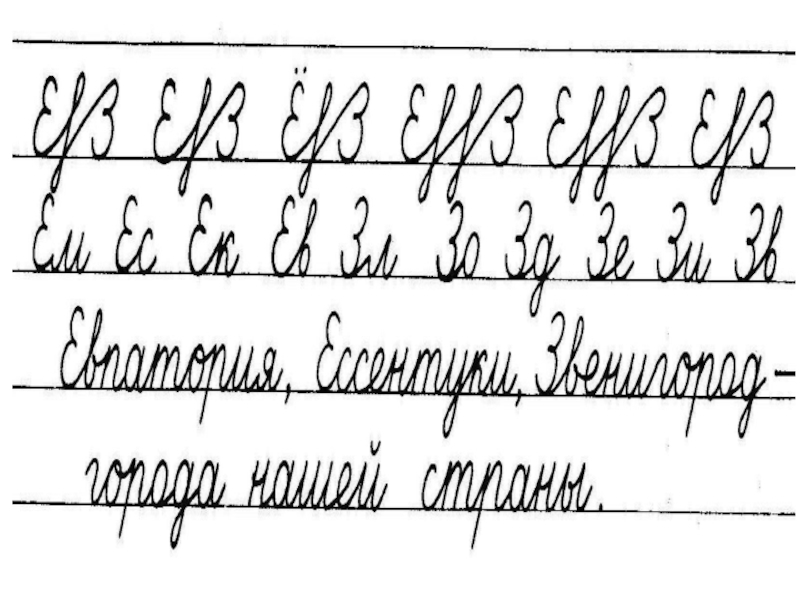 ЕfЗ ЕfЗ ЁfЗ ЕffЗ ЕffЗ ЕfЗ
Ем Ес Ек Ев Зл Зо Зд Зе Зи Зв
Евпатория, Ессентуки, Звенигород –
города нашей страны.